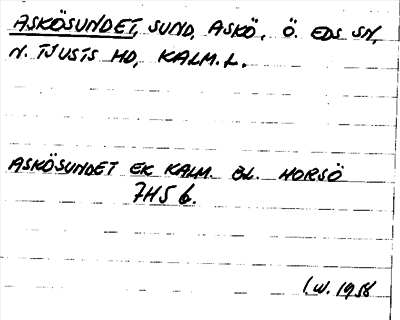 ASKÖSUNDET, SUND, ASKÖ, Ö. EDS SN,
N. TJUSTS HD, KALM. L.
ASKÖSUNDET EK KALM. BL. HORSÖ
7H5 b.
I.W. 1958